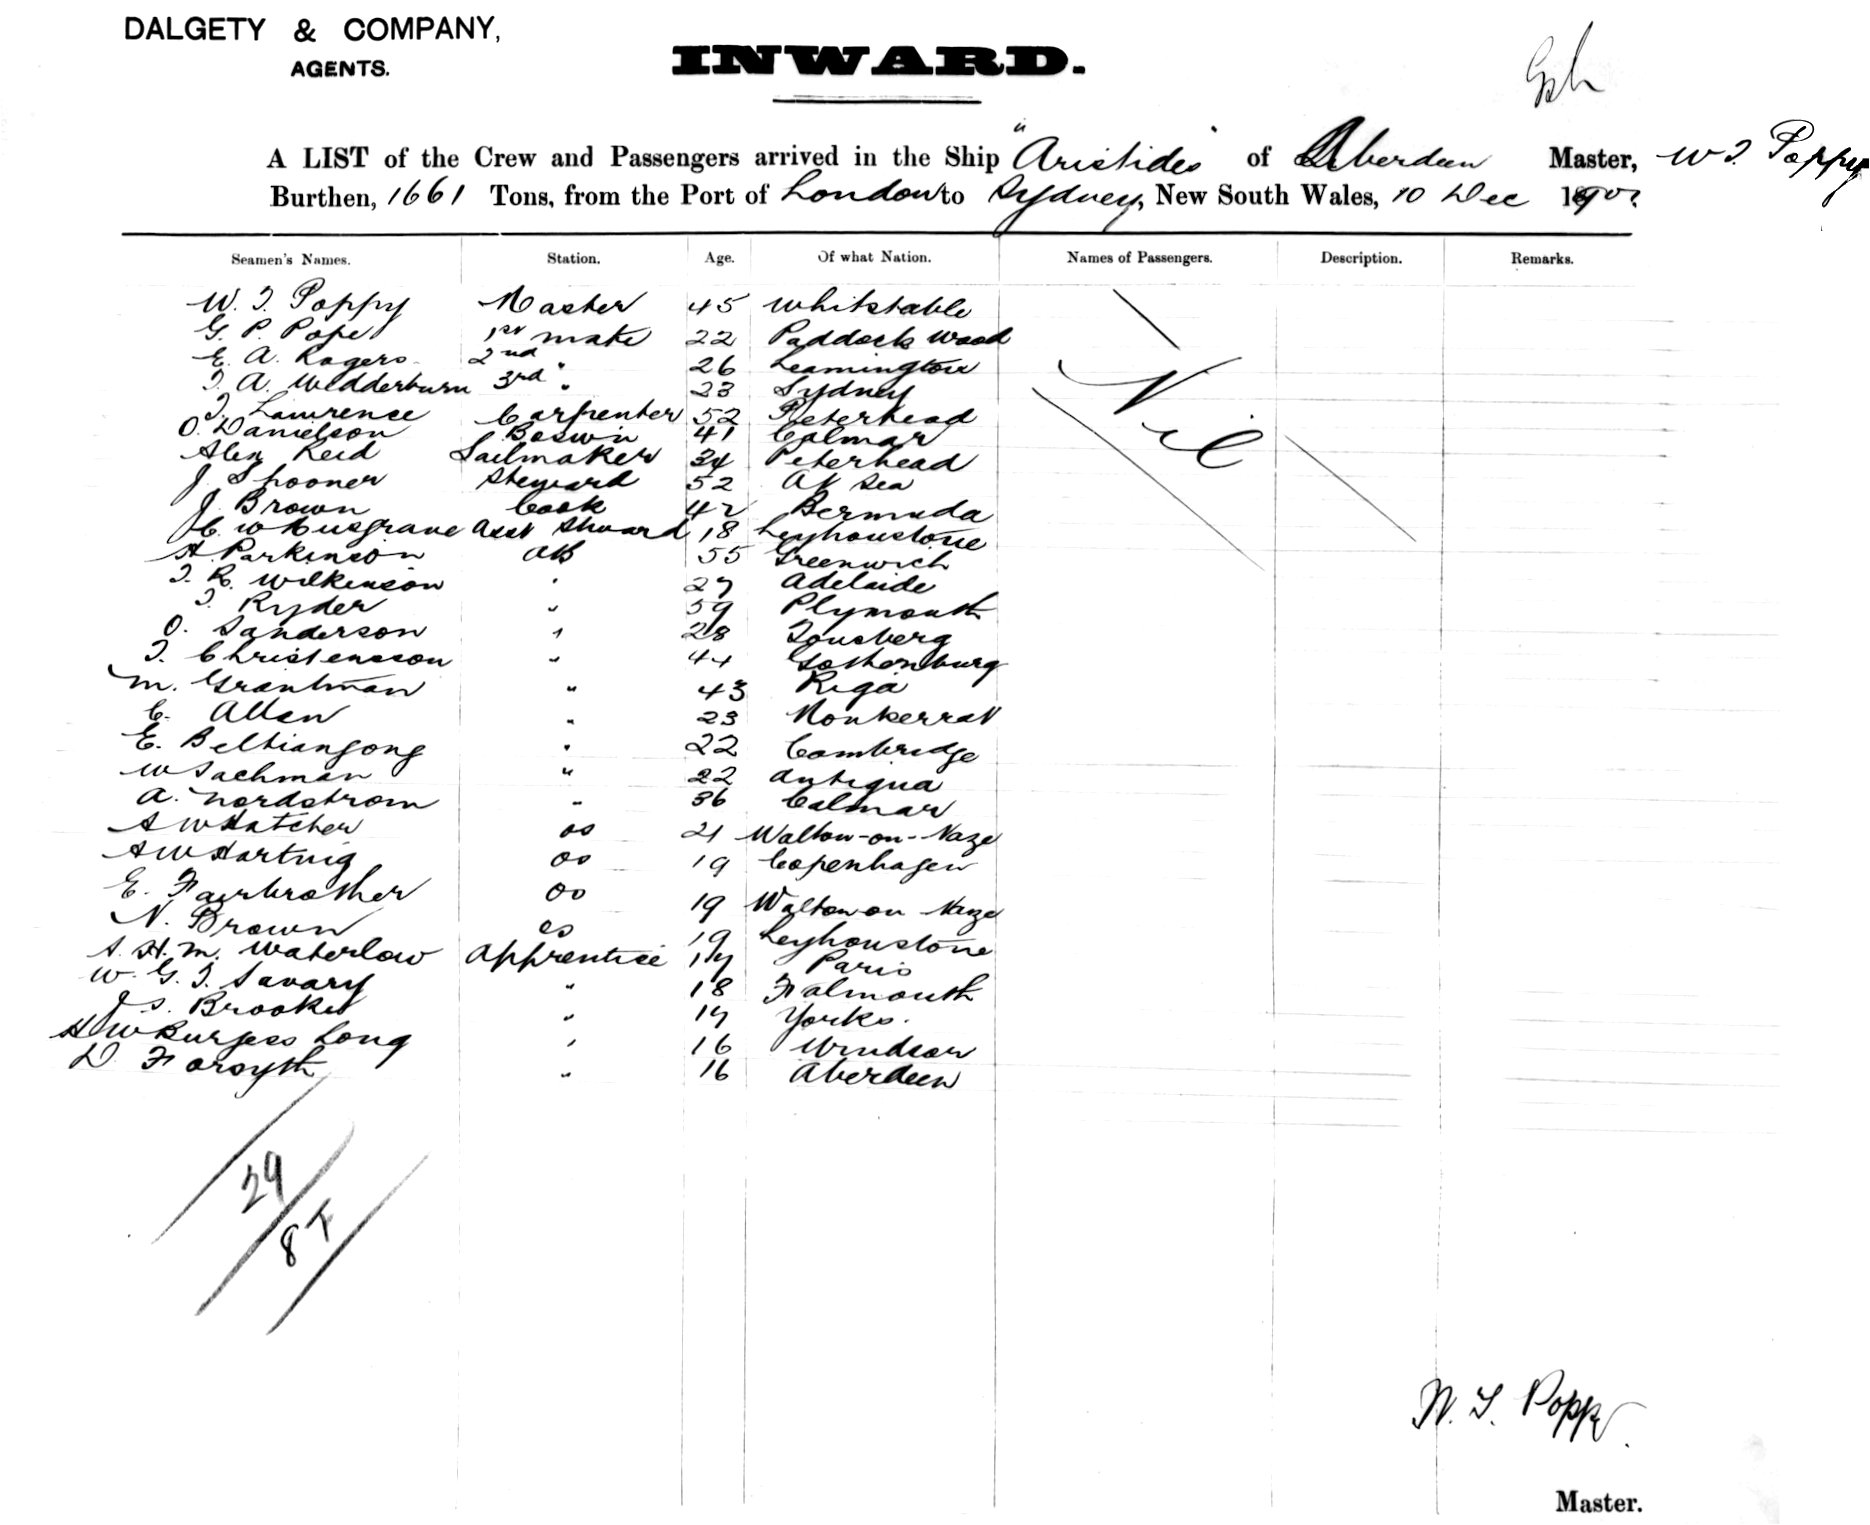 DALGETY & COMPANY,
AGENTS.
INWARD.
A LIST of the Crew and Passengers arrived in the Ship "Aristides" of Aberdeen Master, W T Poppy
Burthen, 1661 Tons, from the Port of London to Sydney, New South Wales, 10 Dec 1902
Seamen's Names. Station. Age. Of what Nation. Names of Passengers. Description. Remarks.
W. T. Poppy Master 45 Whitstable
G. P. Pope 1st mate 22 Paddock Wood
E. A. Rogers 2nd " 26 Leamington
T. A. Wedderburn 3rd " 23 Sydney
Nil
T. Lawrence Carpenter 52 Peterhead
O. Danielson Boswin 41 Calmar
Alex Reid Sailmaker 34 Peterhead
J Spooner Steward 52 At Sea
J Brown Cook 42 Bermuda
C. W Musgrave Asst Steward 18 Leyhoustone
H Parkinson AB 55 Greenwich
T. R. Wilkinson " 27 Adelaide
T. Ryder " 59 Plymouth
O. Sanderson " 28 Tonsberg
T. Christensson " 44 Gothenburg
M. Grantman " 43 Riga
C. Allen " 23 Montserrat
E. " 22 Cambridge
W " 22 Antigua
A. Nordstrom " 36 Calmar
A W Hatcher OS 21 Walton-on-Naze
A W Hartnig OS 19 Copenhagen
E. Fairbrother OS 19 Walton on Naze
N. Brown OS 19 Leyhoustone
A. H. M. Waterlow Apprentice 17 Paris
W. G. T. Savary " 18 Falmouth
J S. Brooke " 17 Yorks.
H W Burgess Long " 16 Windsor
D. Forsyth " 16 Aberdeen
29
8 F
W. T. Poppy
Master.